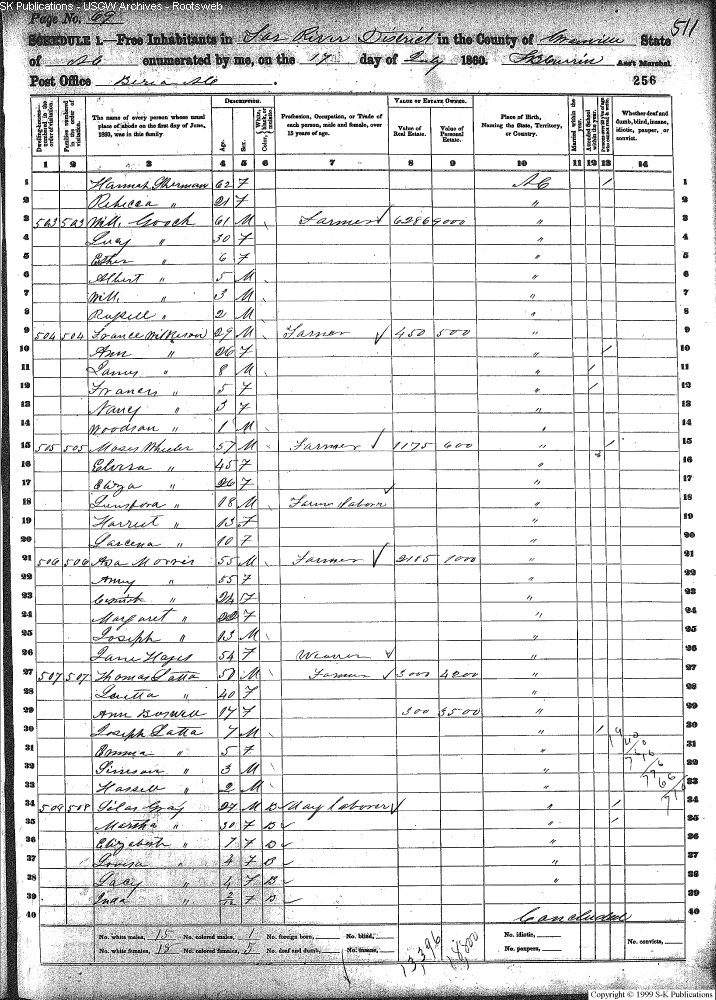 SK Publications - USGW Archives - Rootsweb
Page No. 69
511
SCHEDULE 1.—Free Inhabitants in Tar River District in the County of Granville State
of NC enumerated by me, on the 17 day of July 1860. Ass't Marshal
Post Office Berea NC. 256
DESCRIPTION. VALUE OF ESTATE OWNED.
Dwelling-houses—numbered in the order of visitation. Families numbered in the order of visitation. The name of every person whose usual place of abode on the first day of June, 1860, was in this family. Age. Sex. Color, White, black, or mulatto. Profession, Occupation, or Trade of each person, male and female, over 15 years of age. Value of Real Estate. Value of Personal Estate. Place of Birth, Naming the State, Territory, or Country. Married within the year. Attended School within the year. Persons over 20 y'rs of age who cannot read & write. Whether deaf and dumb, blind, insane, idiotic, pauper, or convict.
1 2 3 4 5 6 7 8 9 10 11 12 13 14
1 Hannah Sherman 62 F NC / 1
2 Rebecca " 21 F " 2
3 503 503 Will. Gooch 61 M Farmer 6286 9000 " 3
4 Lucy " 30 F " 4
5 Esther " 6 F " 5
6 Albert " 5 M " 6
7 Will. " 3 M " 7
8 Russell " 2 M " 8
9 504 504 France Wilkerson 29 M Farmer 450 500 " 9
10 Ann " 26 F " / 10
11 James " 8 M " / 11
12 Frances " 5 F " / 12
13 Nancy " 3 F " 13
14 Woodson " 1 M " 14
15 505 505 Moses Wheeler 57 M Farmer 1175 600 " / 15
16 Elvira " 45 F " 16
17 Eliza " 26 F " 17
18 " 18 M Farm Laborer " 18
19 Harriet " 13 F " 19
20 " 10 F " 20
21 506 506 Asa Morris 55 M Farmer 2165 1000 " 21
22 Amy " 55 F " 22
23 " 24 F " 23
24 Margaret " 22 F " 24
25 Joseph " 13 M " 25
26 Jane Hayes 54 F Weaver " 26
27 507 507 Thomas Latta 50 M Farmer 3000 4200 " 27
28 Loretta " 40 F " 28
29 Ann Boswell 17 F 300 3500 " 29
30 Joseph Latta 7 M " / 30
31 Emma " 5 F " 31
32 Simeon " 3 M " 32
33 Hassell " 2 M " 33
34 508 508 Silas Gray 27 M B Day laborer " / 34
35 Martha " 30 F B " / 35
36 Elizabeth " 7 F B " 36
37 Lovisa " 4 F B " 37
38 Lacy " 4 F B " 38
39 " 2/12 F B 39
40 Concluded 40
No. white males, 15 No. colored males, 1 No. foreign born, No. blind, No. idiotic,
No. white females, 18 No. colored females, 5 No. deaf and dumb, No. insane, No. paupers, No. convicts,
13,396 18,800
Copyright © 1999 S-K Publications